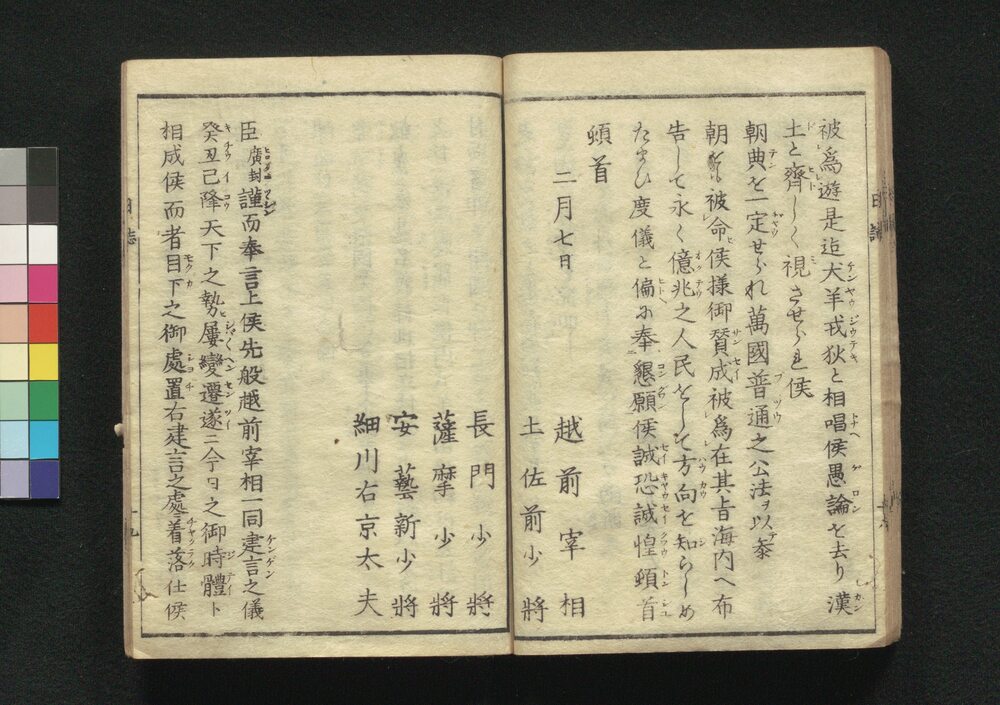 被爲遊是迄犬羊戎狄と相唱候愚論を去り漢
土と齊しく視させられ候
朝典を一定せられ萬國普通之公法ヲ以テ参
朝をも被命候様御賛成被爲在其旨海内へ布
告して永く億兆之人民をして方向を知らしめ
たまひ度儀と偏に奉懇願候誠恐誠惶頓首
頓首
二月七日
越前宰相
土佐前少將
長門少將
薩摩少將
安藝新少將
細川右京太夫
臣廣封謹而奉言上候先般越前宰相一同建言之儀
癸丑已降天下之勢屢變遷遂ニ今日之御時體ト
相成候而者目下之御處置右建言之處着落仕候
日誌
九